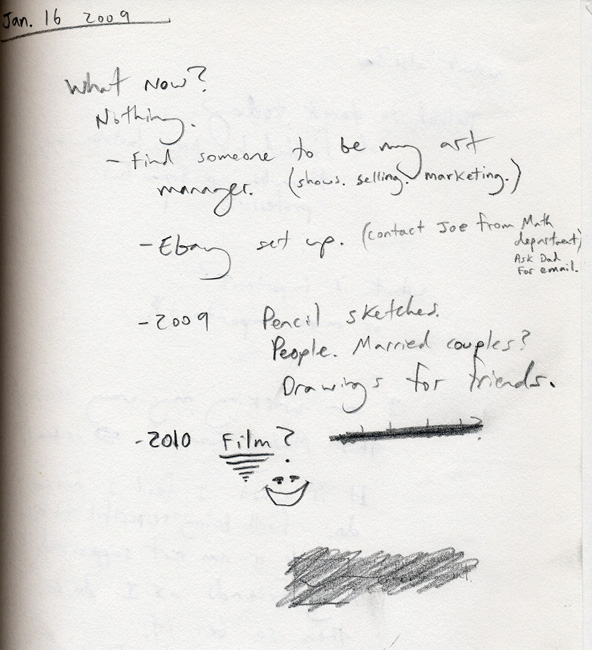 Jan. 16 2009
What Now?
Nothing.
- Find someone to be my art
manager. (shows. selling. marketing.)
- Ebay set up. (contact Joe from Math
department)
Ask Dad
For email.
- 2009 Pencil sketches.
People. Married couples?
Drawings for friends.
- 2010 Film?